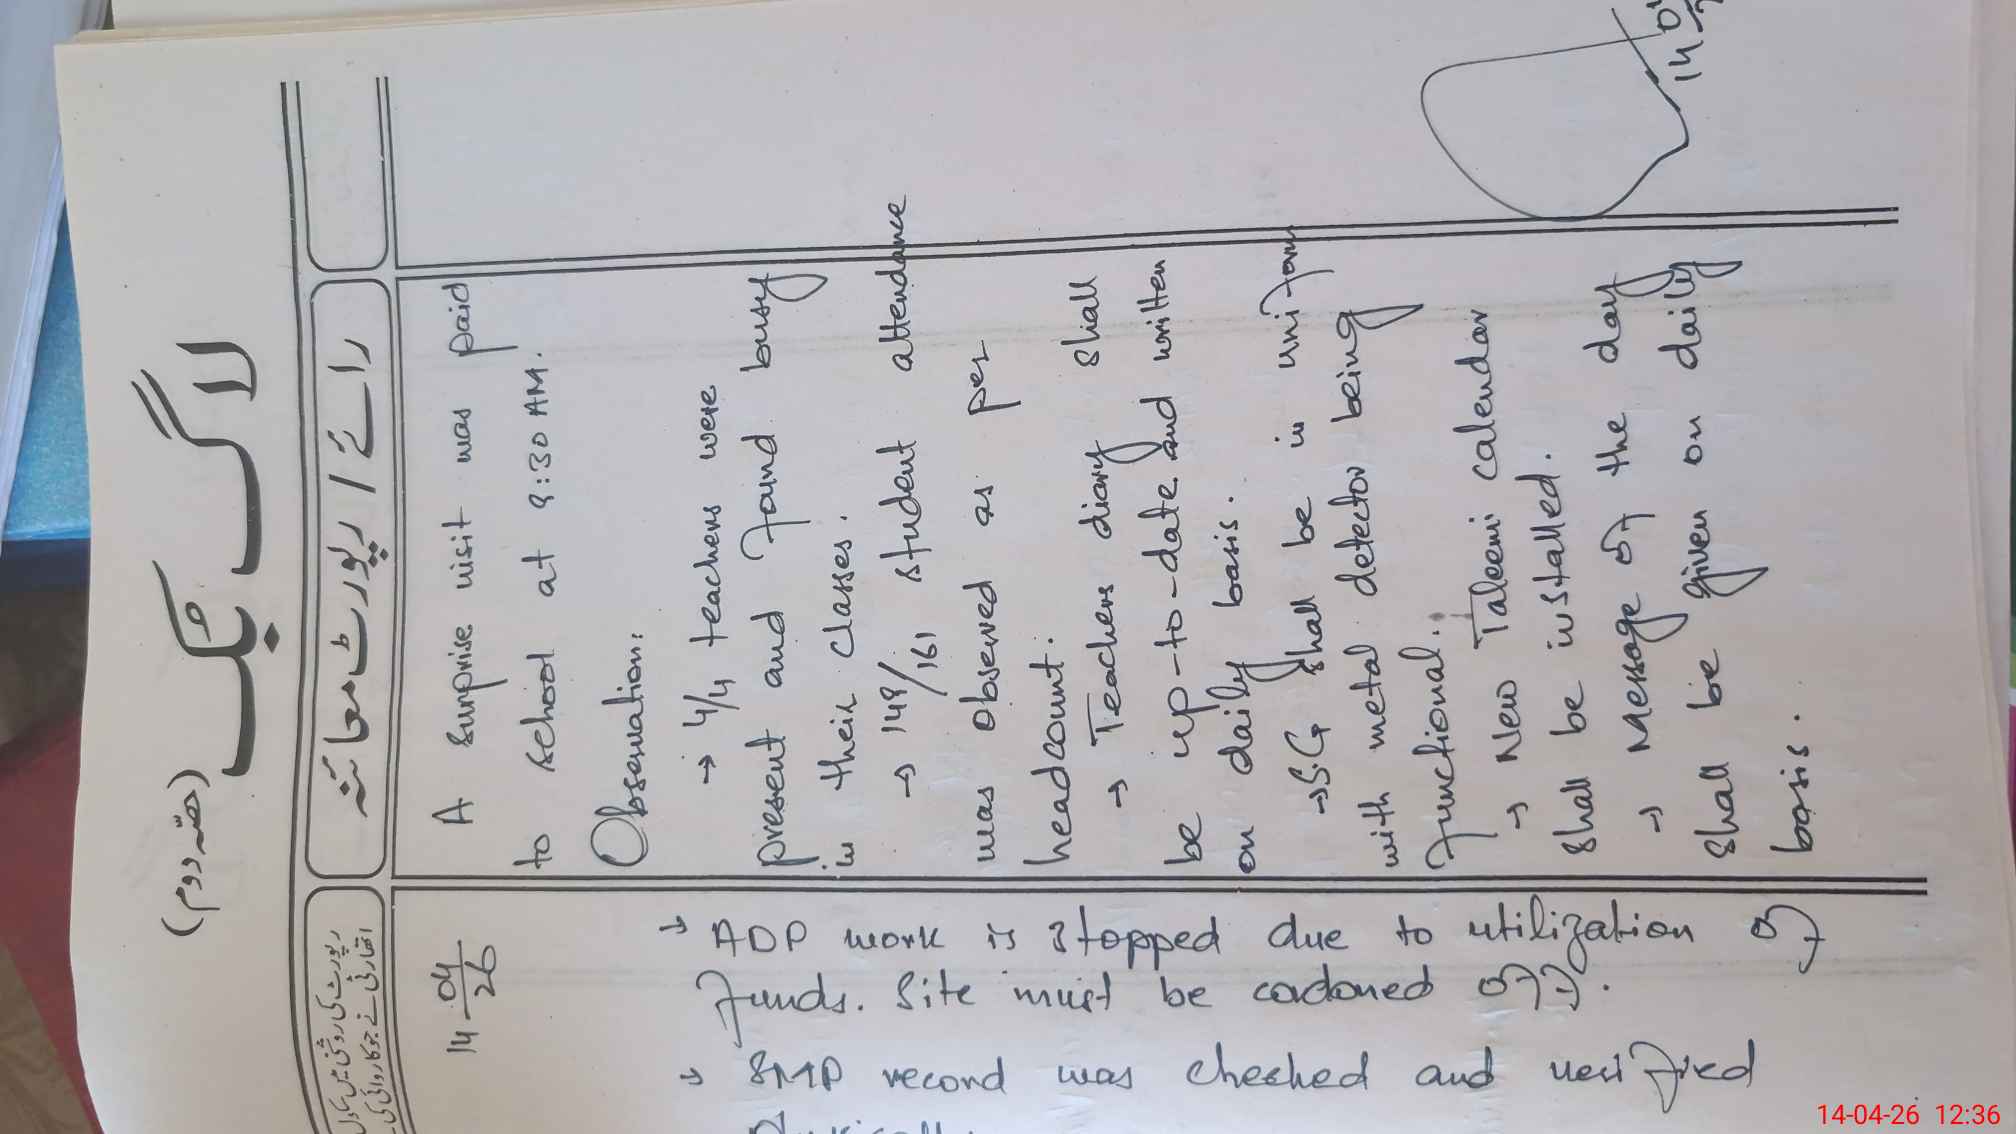 لاگ بک
(حصّہ دوم)
رائے / رپورٹ معائنہ
رپورٹ کی روشنی میں سکول
اتھارٹی نے جو کاروائی کی
14-04/26
A surprise visit was paid
to school at 9:30 AM.
Observation:
→ 4/4 teachers were
present and found busy
in their classes.
→ 149/161 student attendance
was observed as per
headcount.
→ Teachers diary shall
be up-to-date and written
on daily basis.
→ S.G shall be in uniform
with metal detector being
functional.
→ New Taleemi calendar
shall be installed.
→ Message of the day
shall be given on daily
basis.
→ ADP work is stopped due to utilization of
funds. Site must be cordoned off.
→ SMP record was checked and verified
14
14-04-26 12:36